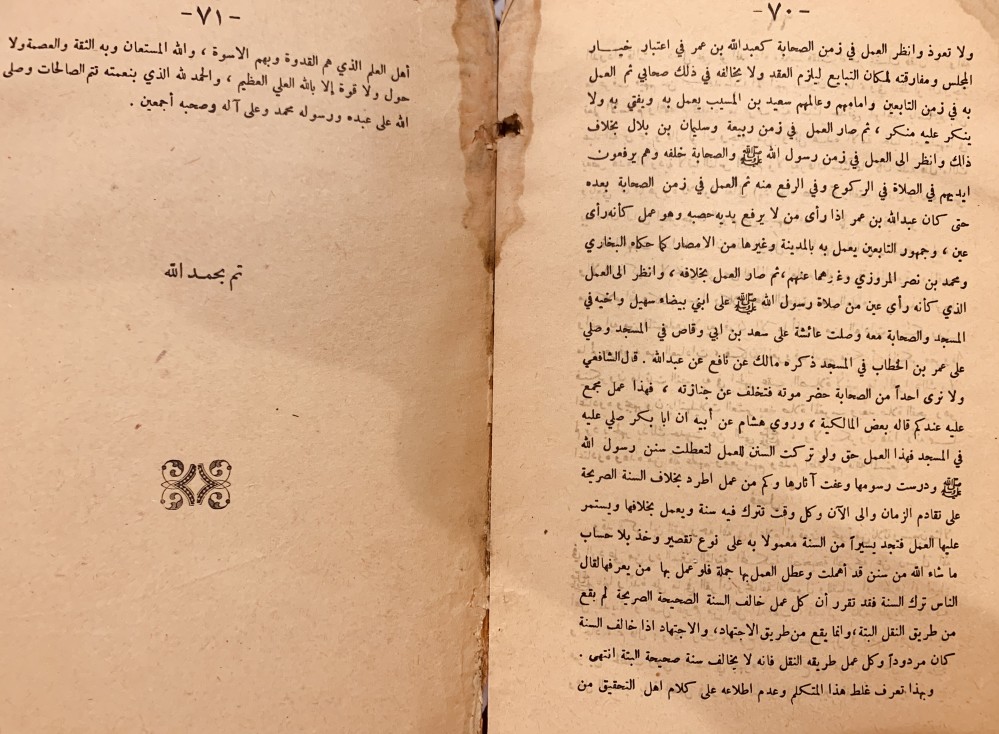 -٧٠-
ولا تعوذ وانظر العمل في زمن الصحابة كعبدالله بن عمر في اعتبار خيـار
المجلس ومفارقته لمكان التبايع ليلزم العقد ولا يخالفه في ذلك صحابي ثم العمل
به في زمن التابعين وامامهم وعالمهم سعيد بن المسيب يعمل به ويفتي به ولا
ينكر عليه منكر ، ثم صار العمل في زمن ربيعة وسليمان بن بلال بخلاف
ذلك وانظر الى العمل في زمن رسول الله ﷺ والصحابة خلفه وهم يرفعون
ايديهم في الصلاة في الركوع وفي الرفع منه ثم العمل في زمن الصحابة بعده
حتى كان عبدالله بن عمر اذا رأى من لا يرفع يديه حصبه وهو عمل كأنه رأى
عين ، وجمهور التابعين يعمل به بالمدينة وغيرها من الامصار كما حكاه البخاري
ومحمد بن نصر المروزي وغرهما عنهم، ثم صار العمل بخلافه ، وانظر الى العمل
الذي كأنه رأي عين من صلاة رسول الله ﷺ على ابني بيضاء سهيل واخيه في
المسجد والصحابة معه وصلت عائشة على سعد بن ابي وقاص في المسجد وصلي
على عمر بن الخطاب في المسجد ذكره مالك عن نافع عن عبدالله . قال الشافعي
ولا نرى احداً من الصحابة حضر موته فتخلف عن جنازته ، فهذا عمل مجمع
عليه عندكم قاله بعض المالكية ، وروي هشام عن أبيه ان ابا بكر صلي عليه
في المسجد فهذا العمل حق ولو تركت السنن للعمل لتعطلت سنن رسول الله
ﷺ ودرست رسومها وعفت آثارها وكم من عمل اطرد بخلاف السنة الصريحة
على تقادم الزمان والى الآن وكل وقت تترك فيه سنة ويعمل بخلافها ويستمر
عليها العمل فتجد يسيراً من السنة معمولا به على نوع تقصير وخذ بلا حساب
ما شاء الله من سنن قد أهملت وعطل العمل بها جملة فلو عمل بها من يعرفها لقال
الناس ترك السنة فقد تقرر أن كل عمل خالف السنة الصحيحة الصريحة لم يقع
من طريق النقل البتة، وانما يقع من طريق الاجتهاد، والاجتهاد اذا خالف السنة
كان مردوداً وكل عمل طريقه النقل فانه لا يخالف سنة صحيحة البتة انتهى .
وبهذا تعرف غلط هذا المتكلم وعدم اطلاعه على كلام اهل التحقيق من
-٧١-
أهل العلم الذي هم القدوة وبهم الاسوة ، والله المستعان وبه الثقة والعصمة ولا
حول ولا قوة إلا بالله العلي العظيم ، والحمد لله الذي بنعمته تتم الصالحات وصلى
الله على عبده ورسوله محمد وعلى آله وصحبه أجمعين .
تم بحمد الله